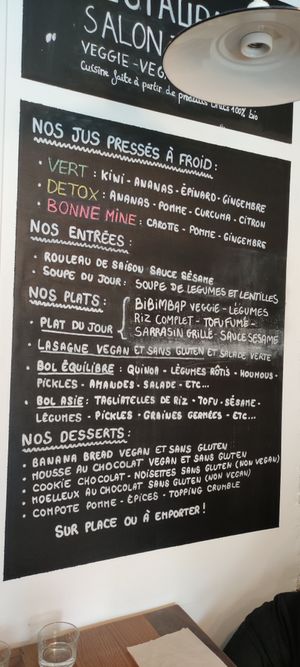 SALON
VEGGIE - VEG
Cuisine faite à partir de produits bruts 100% bio
NOS JUS PRESSÉS À FROID :
• VERT : KIWI - ANANAS - ÉPINARD - GINGEMBRE
• DETOX : ANANAS - POMME - CURCUMA - CITRON
• BONNE MINE : CAROTE - POMME - GINGEMBRE
NOS ENTRÉES :
• ROULEAU DE SAISON SAUCE SÉSAME
• SOUPE DU JOUR : SOUPE DE LÉGUMES ET LENTILLES
NOS PLATS :
• PLAT DU JOUR { BIBIMBAP VEGGIE - LÉGUMES
RIZ COMPLET - TOFU FUMÉ -
SARRASIN GRILLÉ - SAUCE SÉSAME
• LASAGNE VEGAN ET SANS GLUTEN ET SALADE VERTE
• BOL ÉQUILIBRE : QUINOA - LÉGUMES RÔTIS - HOUMOUS -
PICKLES - AMANDES - SALADE - ETC...
• BOL ASIE : TAGLIATELLES DE RIZ - TOFU - SÉSAME -
LÉGUMES - PICKLES - GRAINES GERMÉES - ETC...
NOS DESSERTS :
• BANANA BREAD VEGAN ET SANS GLUTEN
• MOUSSE AU CHOCOLAT VEGAN ET SANS GLUTEN
• COOKIE CHOCOLAT - NOISETTES SANS GLUTEN (NON VEGAN)
• MOELLEUX AU CHOCOLAT SANS GLUTEN (NON VEGAN)
• COMPOTE POMME - ÉPICES - TOPPING CRUMBLE
SUR PLACE OU À EMPORTER !